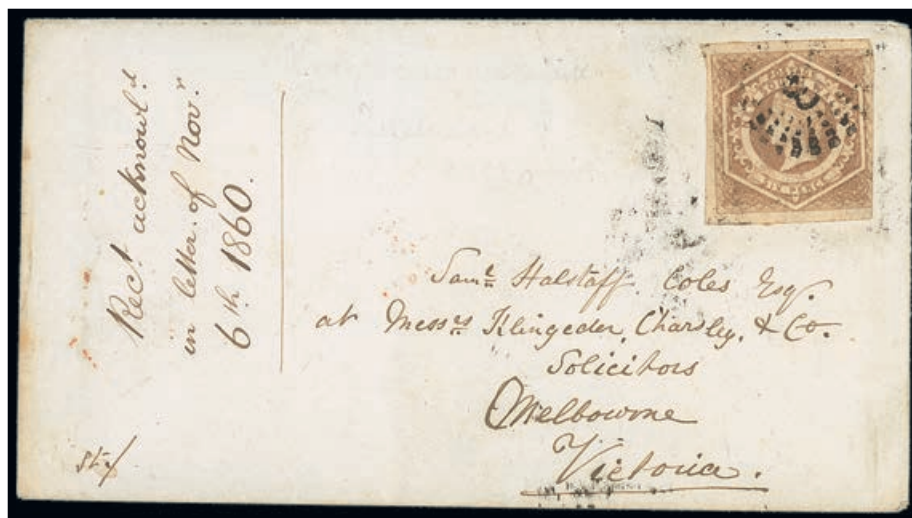 Rect. acknowl.d
in letter of Novr.
6th 1860.
SIX PENCE
Saml. Halstaff Coles Esq.
at Messrs Klingender, Charsley, & Co.
Solicitors
Melbourne
Victoria.